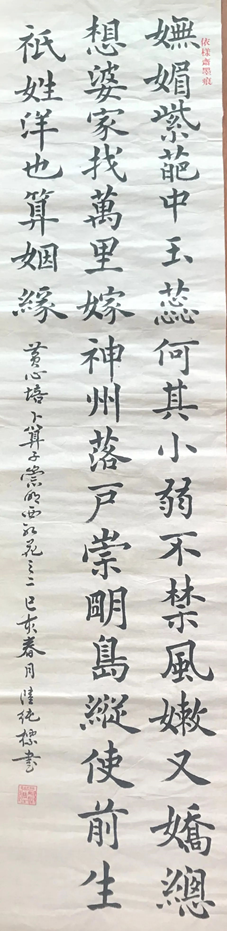 依樣齋墨痕
嫵媚紫葩中玉蕊何其小弱不禁風嫩又嬌總
想婆家找萬里嫁神州落戶崇明島縱使前生
祇姓洋也算姻緣
黃心培卜算子崇明西紅花之二己亥春月陸純標書